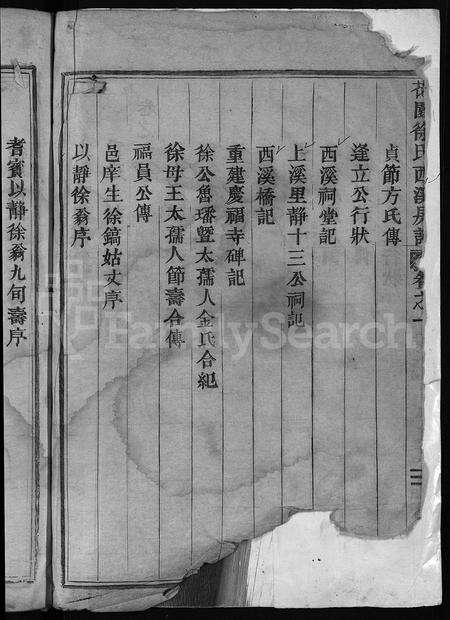 花園徐氏西溪房譜 卷之一
貞節方氏傳
逢立公行狀
西溪祠堂記
上溪里靜十三公祠記
西溪橋記
重建慶福寺碑記
徐公魯璠暨太孺人金氏合紀
徐母王太孺人節壽合傳
福員公傳
邑庠生徐鎬姑丈序
以靜徐翁序
耆賓以靜徐翁九旬壽序
FamilySearch